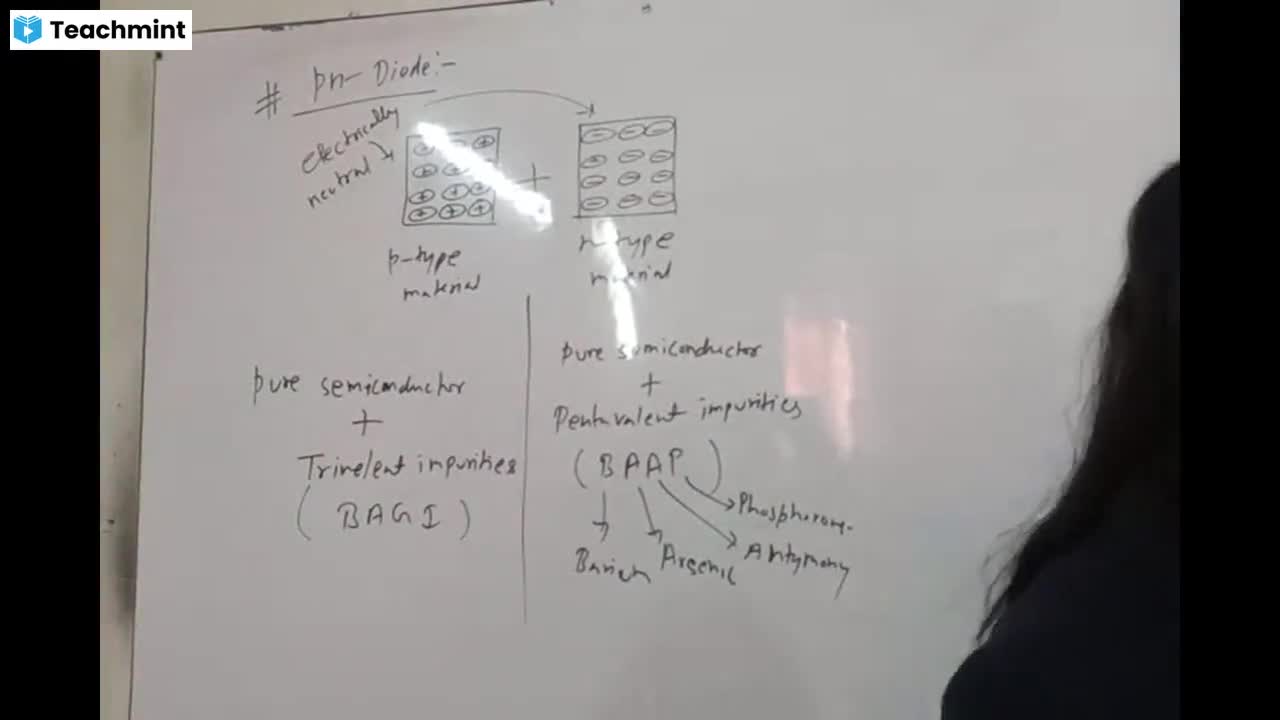 Teachmint
# pn- Diode:-
electrically
neutral
+
p-type
material
n-type
material
pure semiconductor
+
Trivelent impurities
( BAGI )
pure semiconductor
+
Pentavalent impurities
( BAAP )
Phosphorom.
Antymony
Arsenic